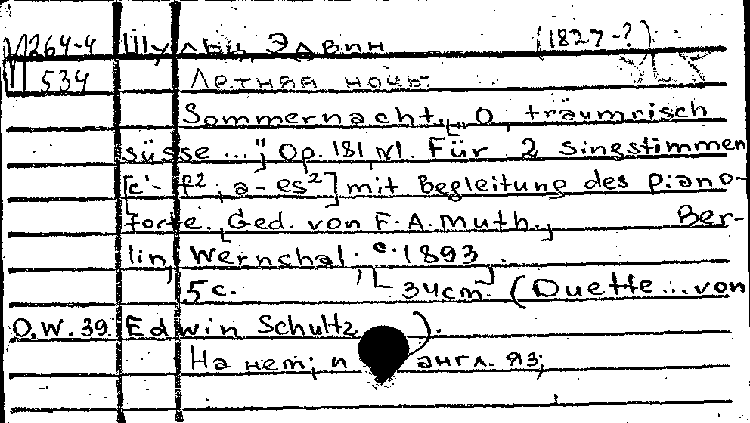 И264-4 Шульц, Эдвин (1827-?)
534 Летняя ночь.
Sommernacht. [„O, träumrisch
süsse ...“] Op. 181, N1. Für 2 Singstimmen
[c¹- f²; a- es²] mit Begleitung des piano-
forte. [Ged. von F. A. Muth.] Ber-
lin, Wernthal. c. 1893.
5 с. 34 cm. (Duette ... von
O.W. 39 Edwin Schultz ).
На нем. и англ. яз.